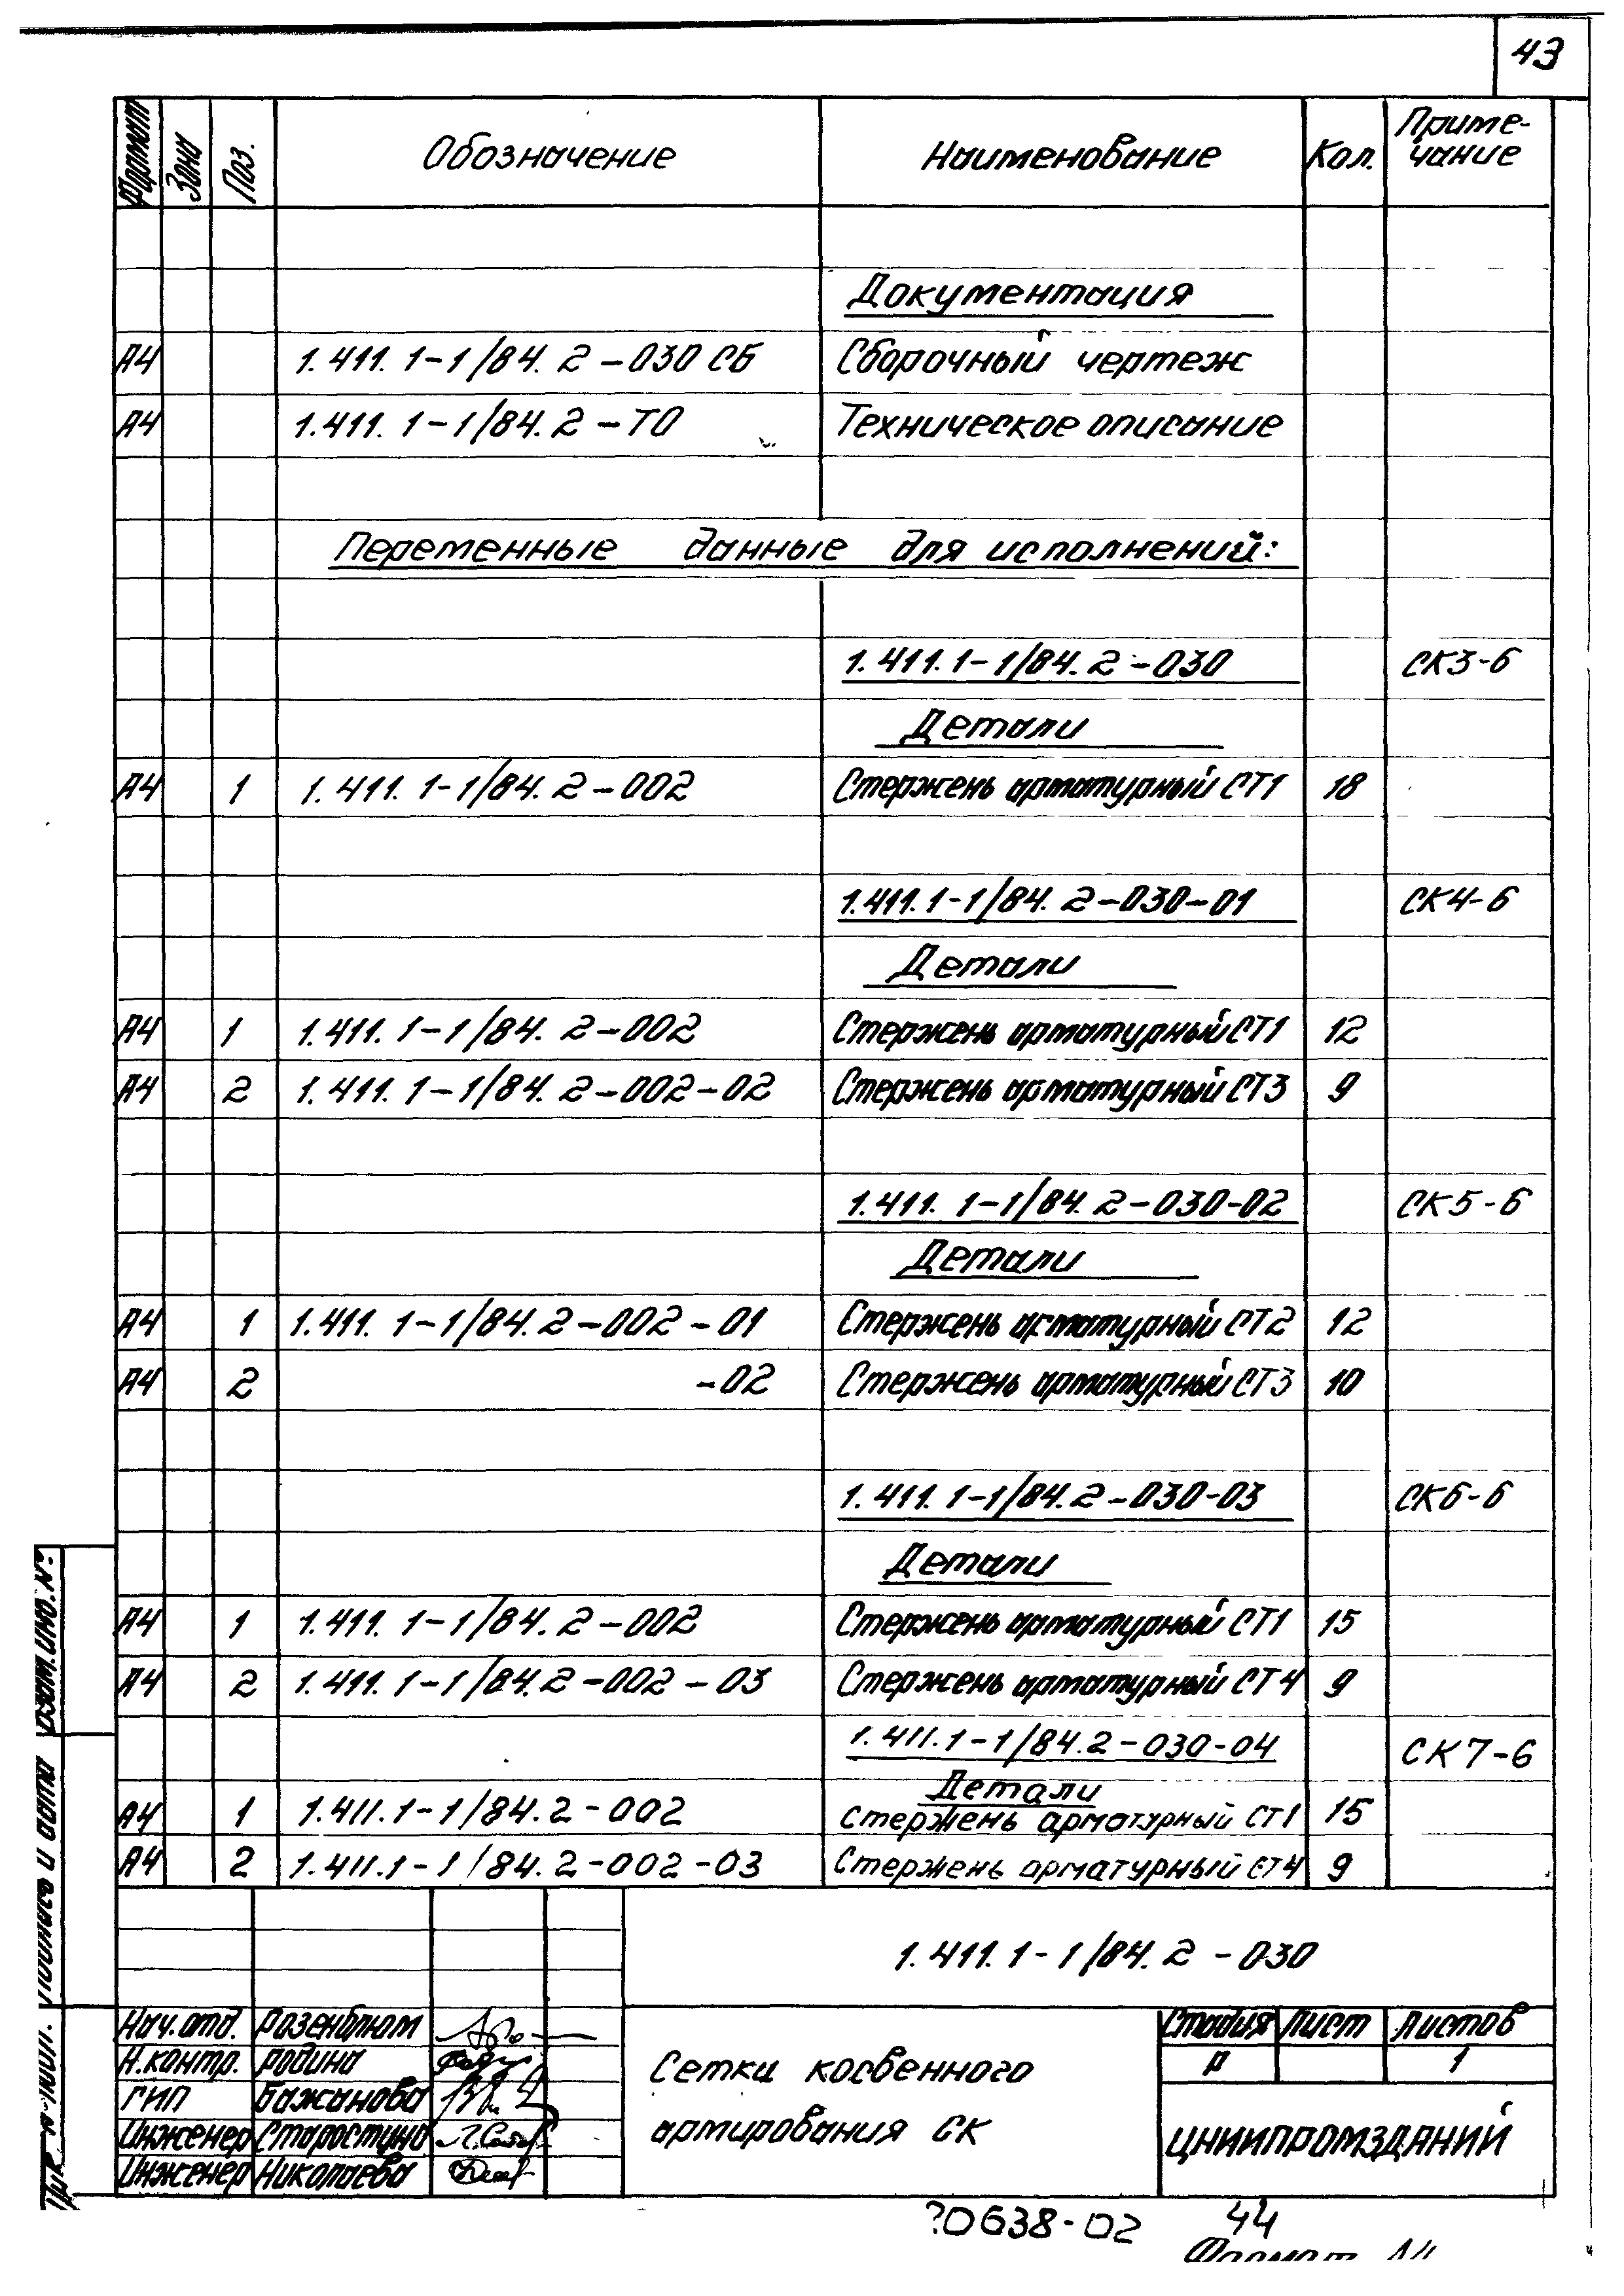 43
Формат Зона Поз. Обозначение Наименование Кол. Приме-
чание
Документация
А4 1.411.1-1/84.2-030 СБ Сборочный чертеж
А4 1.411.1-1/84.2-ТО Техническое описание
Переменные данные для исполнений:
1.411.1-1/84.2-030 СК3-6
Детали
А4 1 1.411.1-1/84.2-002 Стержень арматурный СТ1 18
1.411.1-1/84.2-030-01 СК4-6
Детали
А4 1 1.411.1-1/84.2-002 Стержень арматурный СТ1 12
А4 2 1.411.1-1/84.2-002-02 Стержень арматурный СТ3 9
1.411.1-1/84.2-030-02 СК5-6
Детали
А4 1 1.411.1-1/84.2-002-01 Стержень арматурный СТ2 12
А4 2 -02 Стержень арматурный СТ3 10
1.411.1-1/84.2-030-03 СК6-6
Детали
А4 1 1.411.1-1/84.2-002 Стержень арматурный СТ1 15
А4 2 1.411.1-1/84.2-002-03 Стержень арматурный СТ4 9
1.411.1-1/84.2-030-04 СК7-6
Детали
А4 1 1.411.1-1/84.2-002 Стержень арматурный СТ1 15
А4 2 1.411.1-1/84.2-002-03 Стержень арматурный СТ4 9
1.411.1-1/84.2-030
Нач.отд. Розенблюм
Н.контр. Родина
ГИП Бажанова
Инженер Старостина
Инженер Николаева
Сетки косвенного
армирования СК
Стадия Лист Листов
Р 1
ЦНИИПРОМЗДАНИЙ
Взам.инв.№
Подпись и дата
20638-02 44
Формат А4